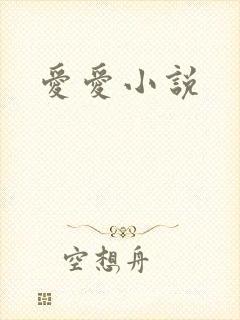 愛愛小説
空想舟